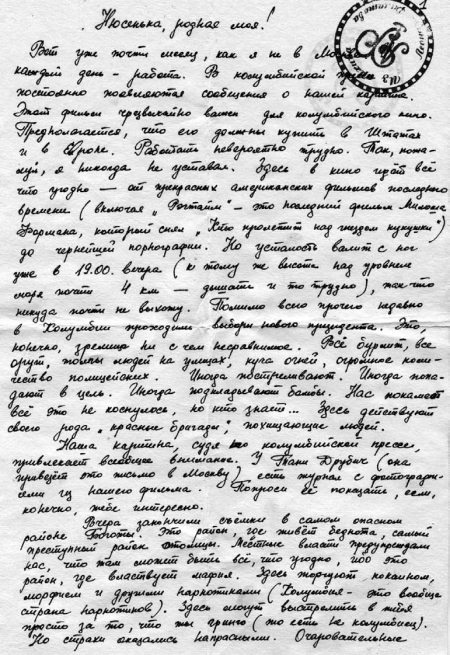 1
Нюсенька, родная моя!
Вот уже почти месяц, как я не в
каждый день – работа. В колумбийской
постоянно появляются сообщения о нашей картине.
Этот фильм чрезвычайно важен для колумбийского кино.
Предполагается, что его должны купить в Штатах
и в Европе. Работать невероятно трудно. Так, пожа-
луй, я никогда не уставал. Здесь в кино идёт всё
что угодно — от прекрасных американских фильмов последнего
времени (включая „Рэгтайм" – это последний фильм Милоша
Формана, который снял „Кто пролетит над гнездом кукушки")
до чернейшей порнографии. Но усталость валит с ног
уже в 19.00 вечера (к тому же высота над уровнем
моря почти 4 км – дышать и то трудно), так что
никуда почти не выхожу. Помимо всего прочего недавно
в Колумбии проходили выборы нового президента. Это,
конечно, зрелище ни с чем несравнимое. Всё бурлит, все
орут, толпы людей на улицах, куча огней, огромное коли-
чество полицейских. Иногда постреливают. Иногда попа-
дают в цель. Иногда подкладывают бомбы. Нас покамест
всё это не коснулось, но кто знает... Здесь действуют
своего рода „красные бригады", похищающие людей.
Наша картина, судя по колумбийской прессе,
привлекает всеобщее внимание. У Тани Друбич (она
привезёт это письмо в Москву) есть журнал с фотография-
ми из нашего фильма. Попроси её показать, если,
конечно, тебе интересно.
Вчера закончили съёмки в самом опасном
районе Боготы. Это район, где живёт беднота, самый
преступный район столицы. Местные власти предупреждали
нас, что там может быть всё, что угодно, ибо это
район, где властвует мафия. Здесь торгуют кокаином,
морфием и другими наркотиками (Колумбия – это вообще
страна наркотиков). Здесь могут выстрелить в тебя
просто за то, что ты гринго (то есть не колумбиец).
Но страхи оказались напрасными. Очаровательные